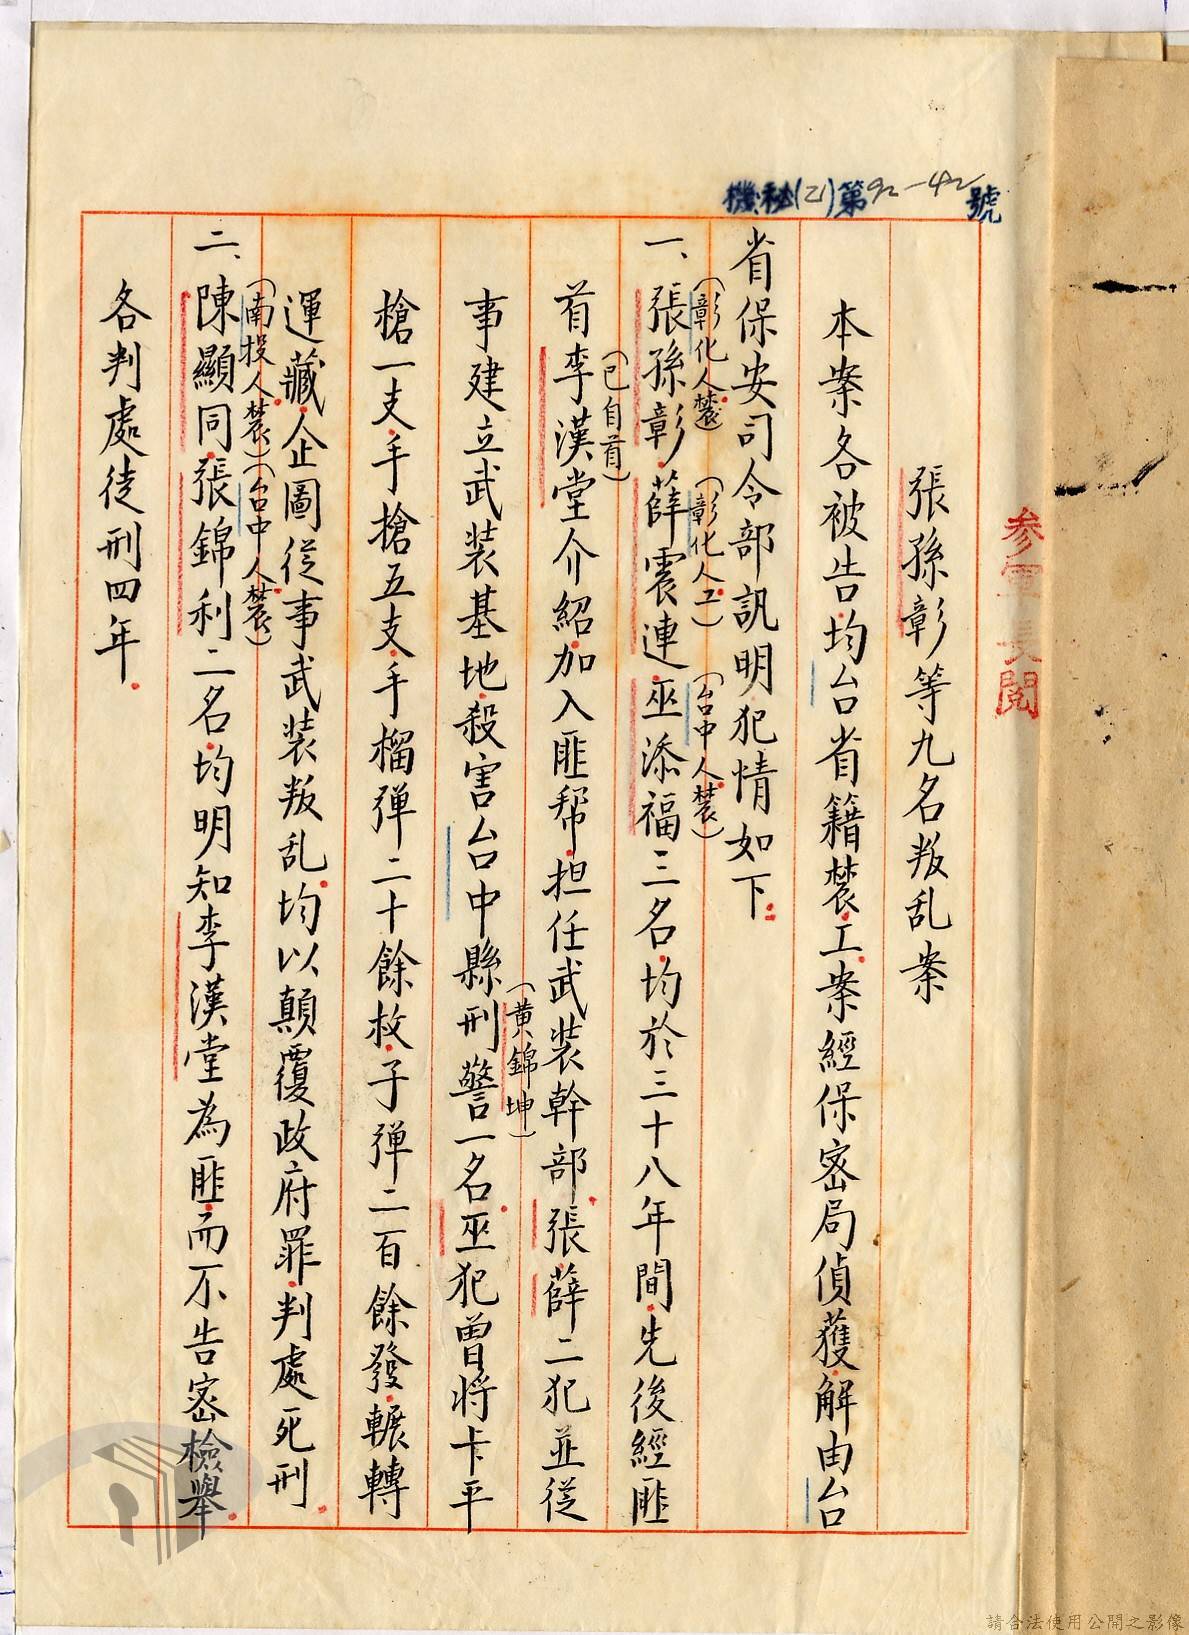 機秘(乙)第92-42號
參軍長閱
張孫彰等九名叛乱案
本案各被告均台省籍農工案經保密局偵獲解由台
省保安司令部訊明犯情如下
(彰化人農)(彰化人工)(台中人農)
一、張孫彰薛震連巫添福三名均於三十八年間先後經匪
(已自首)
首李漢堂介紹加入匪帮担任武装幹部張薛二犯並從
(黃錦坤)
事建立武装基地殺害台中縣刑警一名巫犯曾將卡平
槍一支手槍五支手榴弹二十餘枚子弹二百餘發輾轉
運藏企圖從事武装叛乱均以顛覆政府罪判處死刑
(南投人農)(台中人農)
二、陳顯同張錦利二名均明知李漢堂為匪而不告密檢舉
各判處徒刑四年
請合法使用公開之影像